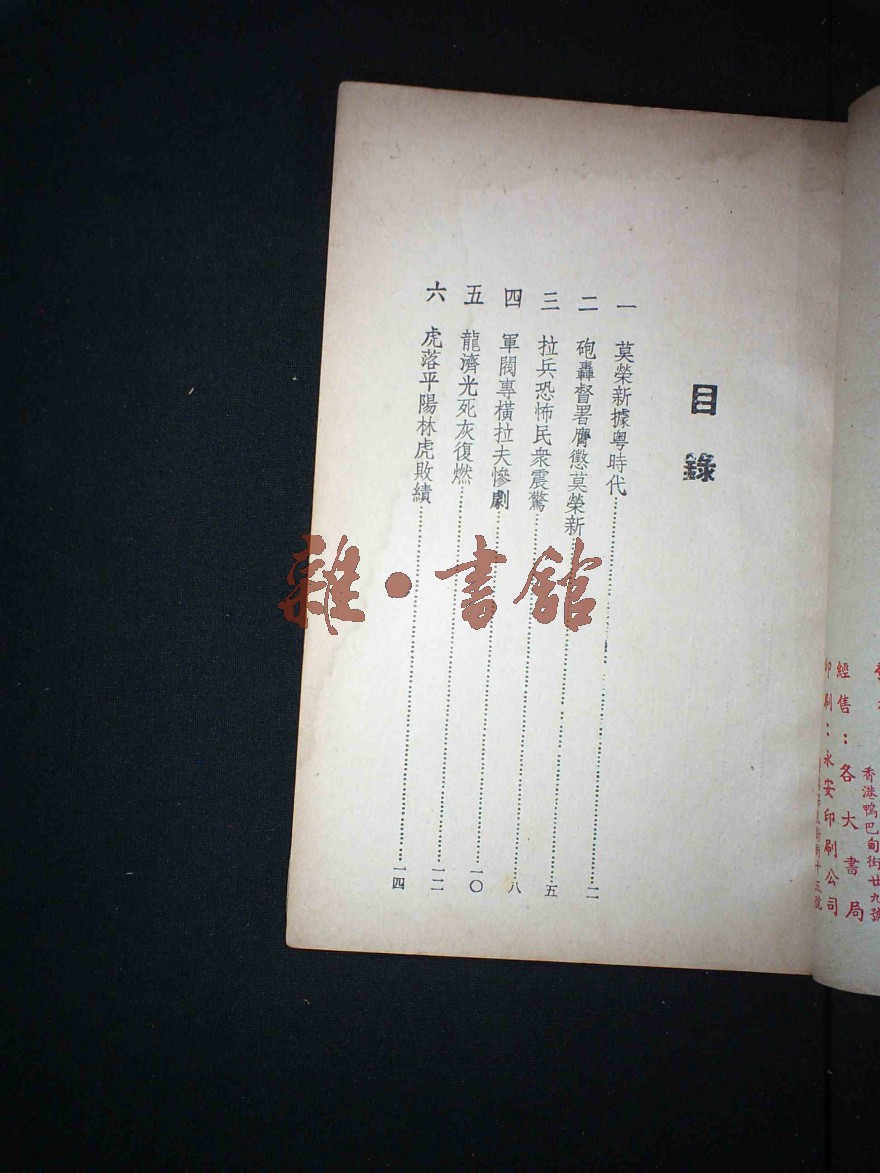 目錄
一 莫榮新據粵時代 二
二 砲轟督署膺懲莫榮新 五
三 拉兵恐怖民衆震驚 八
四 軍閥專橫拉夫慘劇 一〇
五 龍濟光死灰復燃 一二
六 虎落平陽林虎敗績 一四
雜·書館
香港鴨巴甸街廿九號
經售：各大書局
印刷：永安印刷公司
街十五號